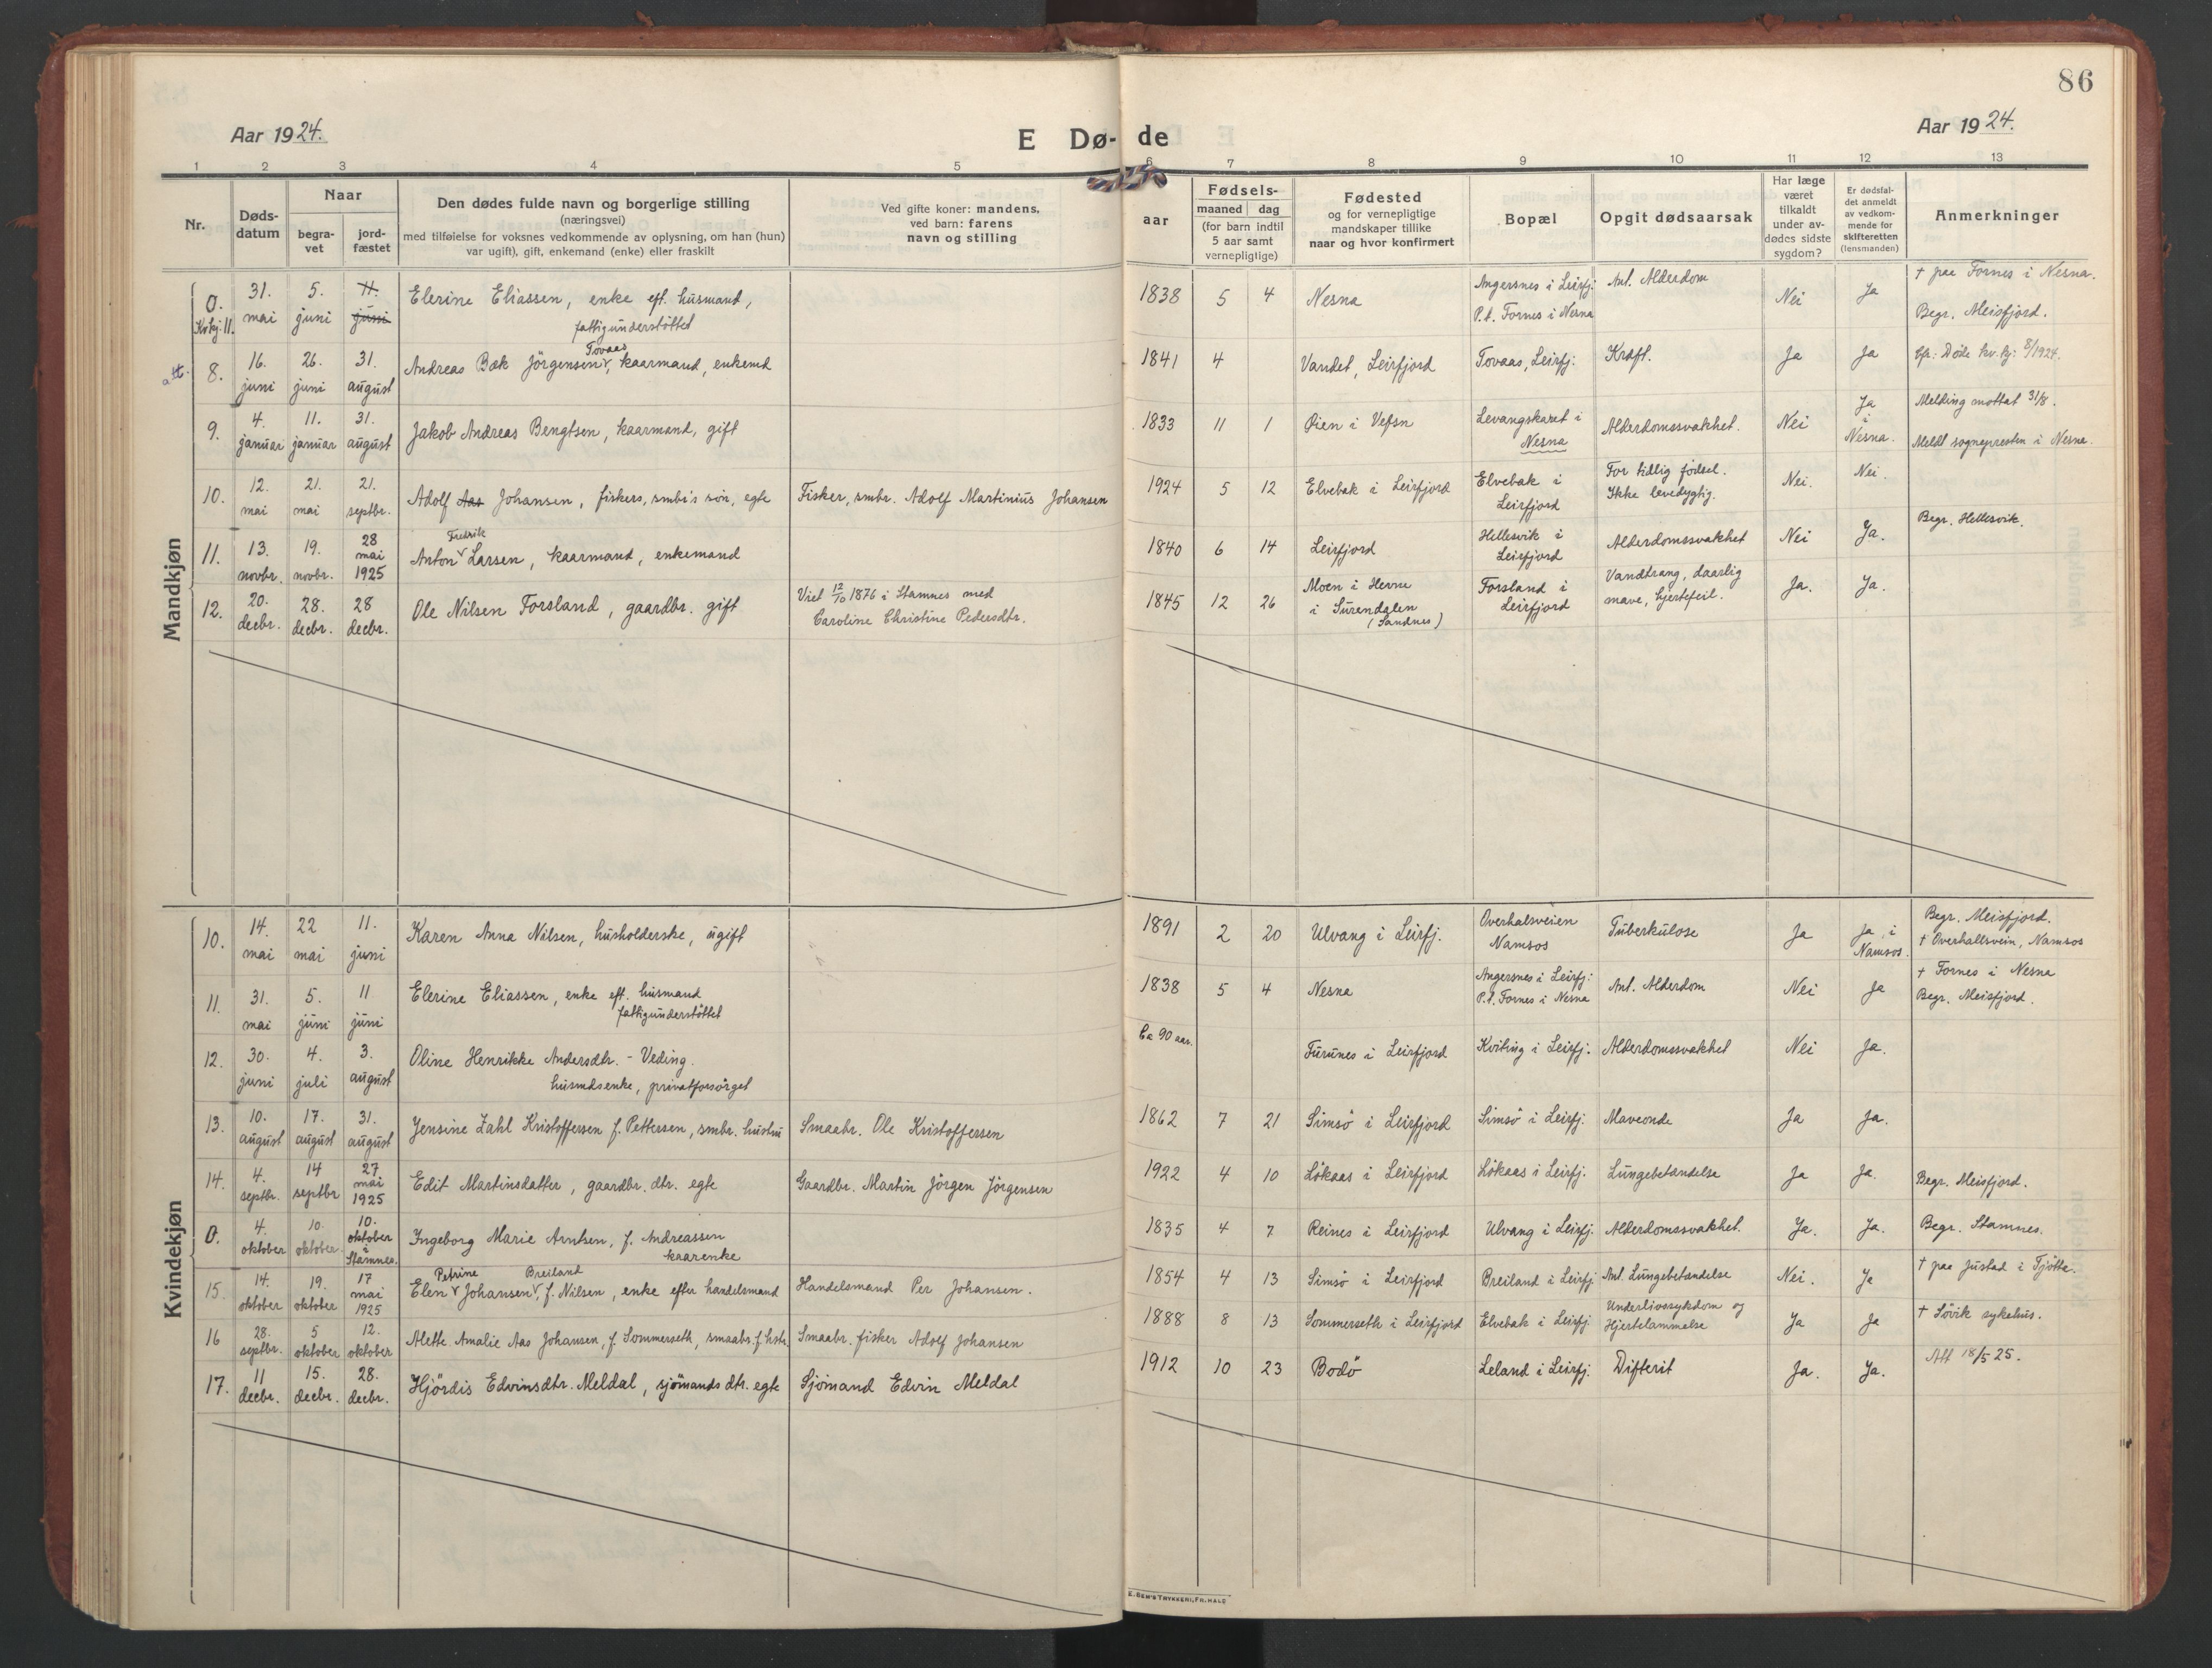 86
Aar 1924.
E Dø-de
Aar 1924.
1 2 3 4 5 6 7 8 9 10 11 12 13
Nr.
Døds-
datum
Naar
begra-
vet
jord-
fæstet
Den dødes fulde navn og borgerlige stilling
(næringsvei)
med tilføielse for voksnes vedkommende av oplysning, om han (hun)
var ugift), gift, enkemand (enke) eller fraskilt
Ved gifte koner: mandens,
ved barn: farens
navn og stilling
Fødsels-
aar
maaned dag
(for barn indtil
5 aar samt
vernepligtige)
Fødested
og for vernepligtige
mandskaper tillike
naar og hvor konfirmert
Bopæl
Opgit dødsaarsak
Har læge
været
tilkaldt
under av-
dødes sidste
sygdom?
Er dødsfal-
det anmeldt
av vedkom-
mende for
skifteretten
(lensmanden)
Anmerkninger
Mandkjøn
0. 31. 5. 11. Elerine Eliassen, enke eft. husmand, 1838 5 4 Nesna Angersnes i Leirfj. Ant. Alderdom Nei Ja † paa Fornes i Nesna.
Kvkj. 11. mai juni juni fattigunderstøttet P.t. Fornes i Nesna Begr. Meisfjord.
Tovaas
att. 8. 16. 26. 31. Andreas Bæk Jörgensen, kaarmand, enkemd 1841 4 Vandet, Leirfjord Tovaas, Leirfj: Kræft. Ja Ja Cfr. Døde kv.kj: 8/1924.
juni juni august
9. 4. 11. 31. Jakob Andreas Bengtsen, kaarmand, gift 1833 11 1 Øien i Vefsn Levangskaret i Alderdomssvakhet. Nei Ja Melding mottat 31/8.
januar januar august Nesna i Nesna. Meldt sognepresten i Nesna.
10. 12. 21. 21. Adolf Aas Johansen, fiskers, smbr's søn, egte Fisker, smbr. Adolf Martinius Johansen 1924 5 12 Elvebak i Leirfjord Elvebak i For tidlig födsel. Nei. Nei.
mai mai septbr. Leirfjord Ikke levedygtig.
Fredrik
11. 13. 19. 28 Anton Larsen, kaarmand, enkemand 1840 6 14 Leirfjord Hellesvik i Alderdomssvakhet Nei Ja. Begr. Hellesvik.
novbr. novbr. mai 1925 Leirfjord
12. 20. 28. 28 Ole Nilsen Forsland, gaardbr. gift Viet 12/10 1876 i Stamnes med 1845 12 26 Moen i Herne Forsland i Vandtrang, daarlig Ja. Ja.
decbr. decbr. decbr. Caroline Christine Pedersdtr. i Surendalen Leirfjord mave, hjertefeil.
(Sandnes)
Kvindekjøn
10. 14. 22 11. Karen Anna Nilsen, husholderske, ugift 1891 2 20 Ulvang i Leirfj. Overhalsveien Tuberkulose Ja Ja i Begr. Meisfjord.
mai mai juni Namsos Namsos. † Overhallsvein, Namsos
11. 31. 5. 11 Elerine Eliassen, enke eft. husmand 1838 5 4 Nesna Angersnes i Leirfj: Ant. Alderdom Nei Ja † Fornes i Nesna
mai juni juni fattigunderstøttet P.t. Fornes i Nesna Begr. Meisfjord.
12. 30. 4. 3. Oline Henrikke Andersdtr. - Veding. Ca 90 aar. Furunes i Leirfjord Kviting i Leirfj. Alderdomssvakhet Nei Ja.
juni juli august husmdsenke, privatforsørget
13. 10. 17. 31. Jensine Zahl Kristoffersen f. Pettersen, smbr. hustru Smaabr. Ole Kristoffersen 1862 7 21 Simsö i Leirfjord Simsö i Leirfj. Maveonde Ja Ja.
august august august
14. 4. 14 27 Edit Martinsdatter, gaardbr. dtr. egte Gaardbr. Martin Jörgen Jörgensen 1922 4 10 Lökaas i Leirfjord Lökaas i Leirfj. Lungebetændelse Ja Ja. Begr. Meisfjord.
septbr. septbr mai 1925
0. 4. 10. 10. Ingeborg Marie Arntsen, f. Andreassen 1835 4 7 Reines i Leirfjord Ulvang i Leirfj. Alderdomssvakhet. Ja. Ja. Begr. Stamnes.
oktober oktober. oktober i Stamnes. kaarenke
Petrine Breiland
15. 14. 19. 17 Elen Johansen, f. Nilsen, enke efter handelsmand Handelsmand Per Johansen. 1854 4 13 Simsö i Leirfjord Breiland i Leirfj. Ant. Lungebetændelse Nei. Ja † paa Justad i Tjötta.
oktober oktober mai 1925
16 28. 5 12. Alette Amalie Aas Johansen, f. Sommerseth, smaabr. f. hstr. Smaabr. fisker Adolf Johansen 1888 8 13 Sommerseth i Leirfjord Elvebak i Leirfj. Underlivssykdom og Ja Ja † Sövik sykehus.
septbr. oktober oktober Hjertelammelse
17. 11 15. 28. Hjördis Edvinsdtr. Meldal, sjömands dtr. egte Sjömand Edvin Meldal 1912 10 23 Bodö Leland i Leirfj. Difterit Ja. Ja. Att 18/5 25.
decbr. decbr. decbr.
E. SEM'S TRYKKERI, FR.HALD